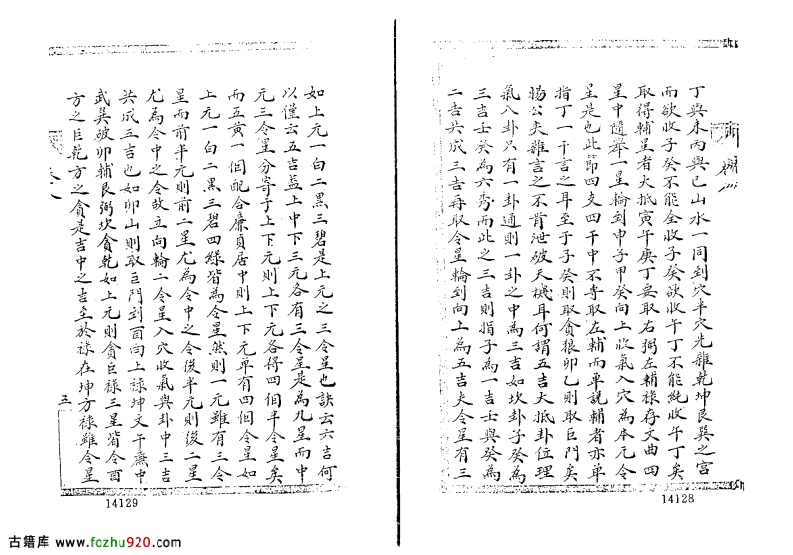 丁與未丙與巳山水一同到穴半穴光雜乾坤艮巽之宫
而欲收子癸不能全收子癸欲收午丁不能純收午丁矣
取得輔星者大抵寅午庚丁要取右弼左輔祿存文曲四
星中隨舉一星輪到申子甲癸向上收氣入穴為本元令
星是也此節四支四干中不專取左輔而單說輔者亦單
指丁一干言之耳至于子癸則取貪狼卯乙則取巨門矣
楊公夫雖言之不肯泄破天機耳何謂五吉大抵卦位理
氣八卦只有一卦通則一卦之中為三吉如坎卦子癸為
三吉壬癸為六秀而此之三吉則指子為一吉壬與癸為
二吉共成三吉再取令星輪到向上為五吉夫令星有三
14128
如上元一白二黑三碧是上元之三令星也訣云六吉何
以僅云五吉蓋上中下三元各有三令星是為九星而中
元三令星分寄于上下元則上下元各得四個半令星矣
而五黃一個配合廉貞居中則上下元單有四個令星如
上元一白二黑三碧四綠皆為令星然則一元雖有三令
星而前半元則前二星尤為令中之令後半元則後二星
尤為令中之令故立向輪二令星入穴收氣與卦中三吉
共成五吉也如卯山則取巨門到酉向上祿坤文午廉中
武巽破卯輔艮弼坎貪乾如上元則貪巨祿三星皆令酉
方之巨乾方之貪是吉中之吉至於祿在坤方祿雖令星
五
14129
古籍库 www.fozhu920.com